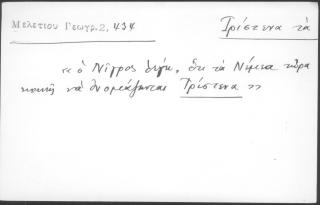 Μελετίου Γεωγρ. 2, 434
Τρίστενα τὰ
"ὁ Νῖγρος λέγει, ὅτι τὰ Νέμεα τώρα
κοινῶς νὰ ὀνομάζωνται Τρίστενα"